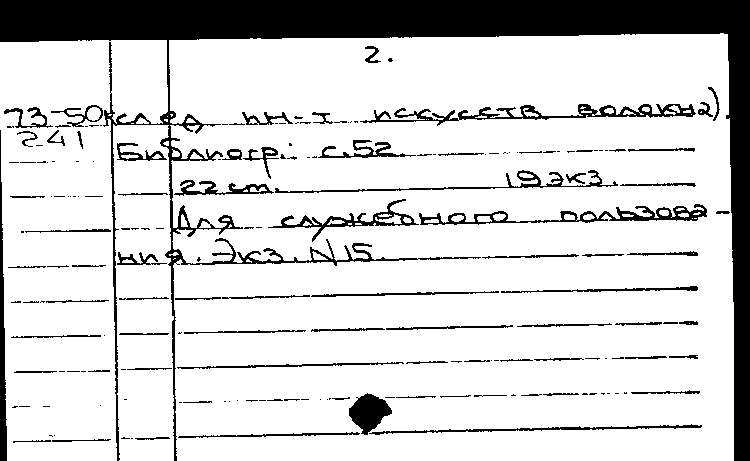 2.
73-50 след ин-т искусств волокна).
241
Библиогр.: с.52.
22 см. 19 экз.
Для служебного пользова-
ния. Экз. N 15.